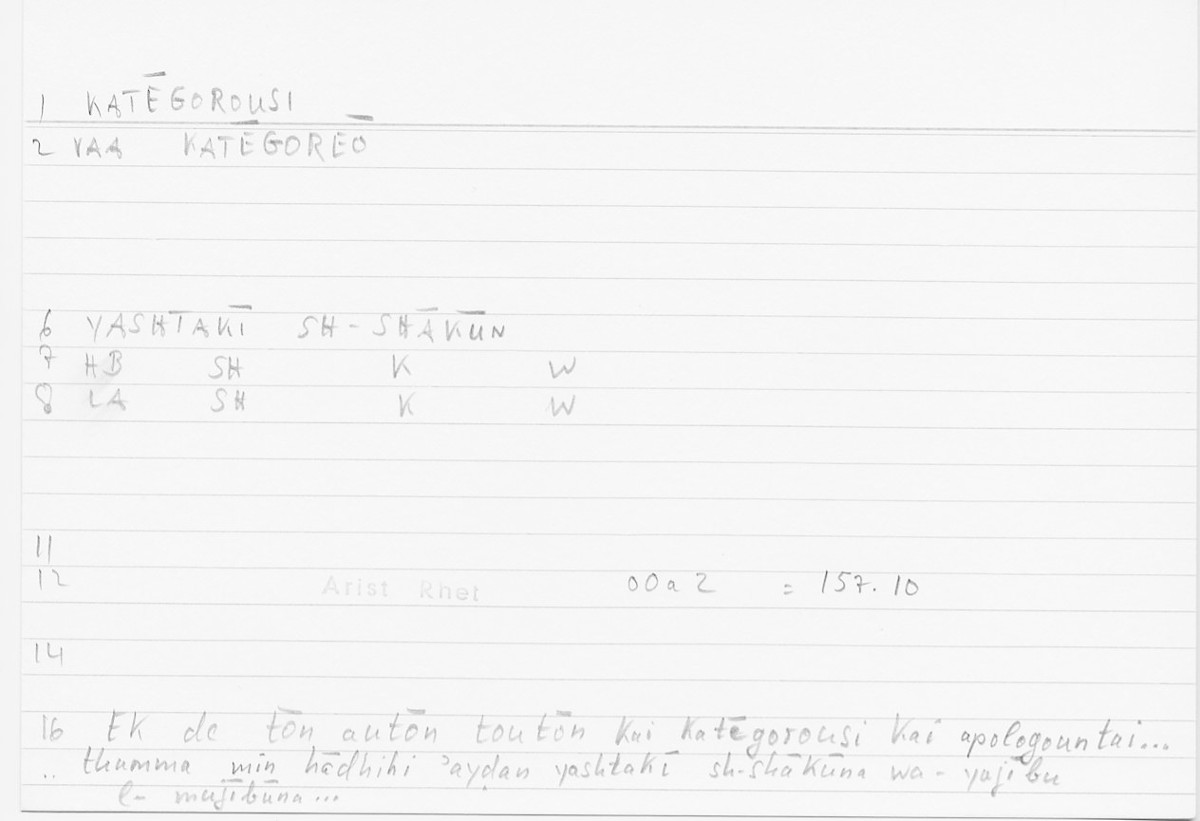 1 KATĒGOROUSI
2 VAA KATĒGOREŌ
6 YASHTAKĪ SH-SHĀKŪN
7 HB SH K W
8 LA SH K W
11
12 Arist Rhet 00a2 = 157.10
14
16 Ek de tōn autōn toutōn kai katēgorousi kai apologountai...
.. thumma min hādhihi ʾayḍan yashtakī sh-shākūna wa-yujību
l-mujībūna...